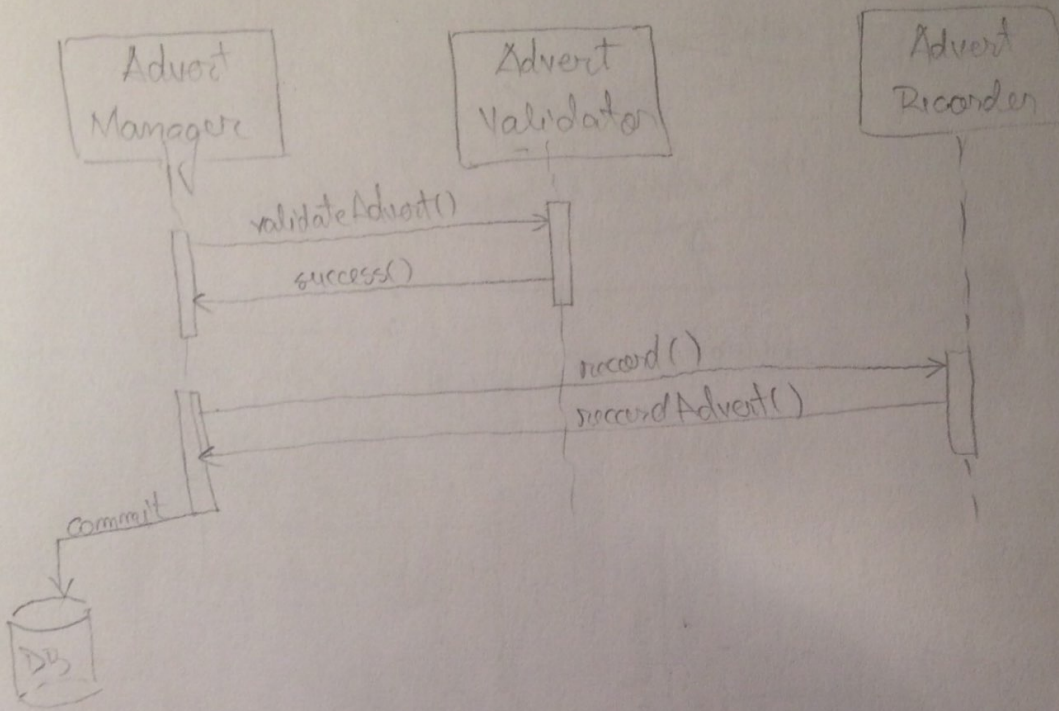 Advert
Manager
Advert
Validator
Advert
Recorder
validateAdvert()
success()
record()
recordAdvert()
commit
DB